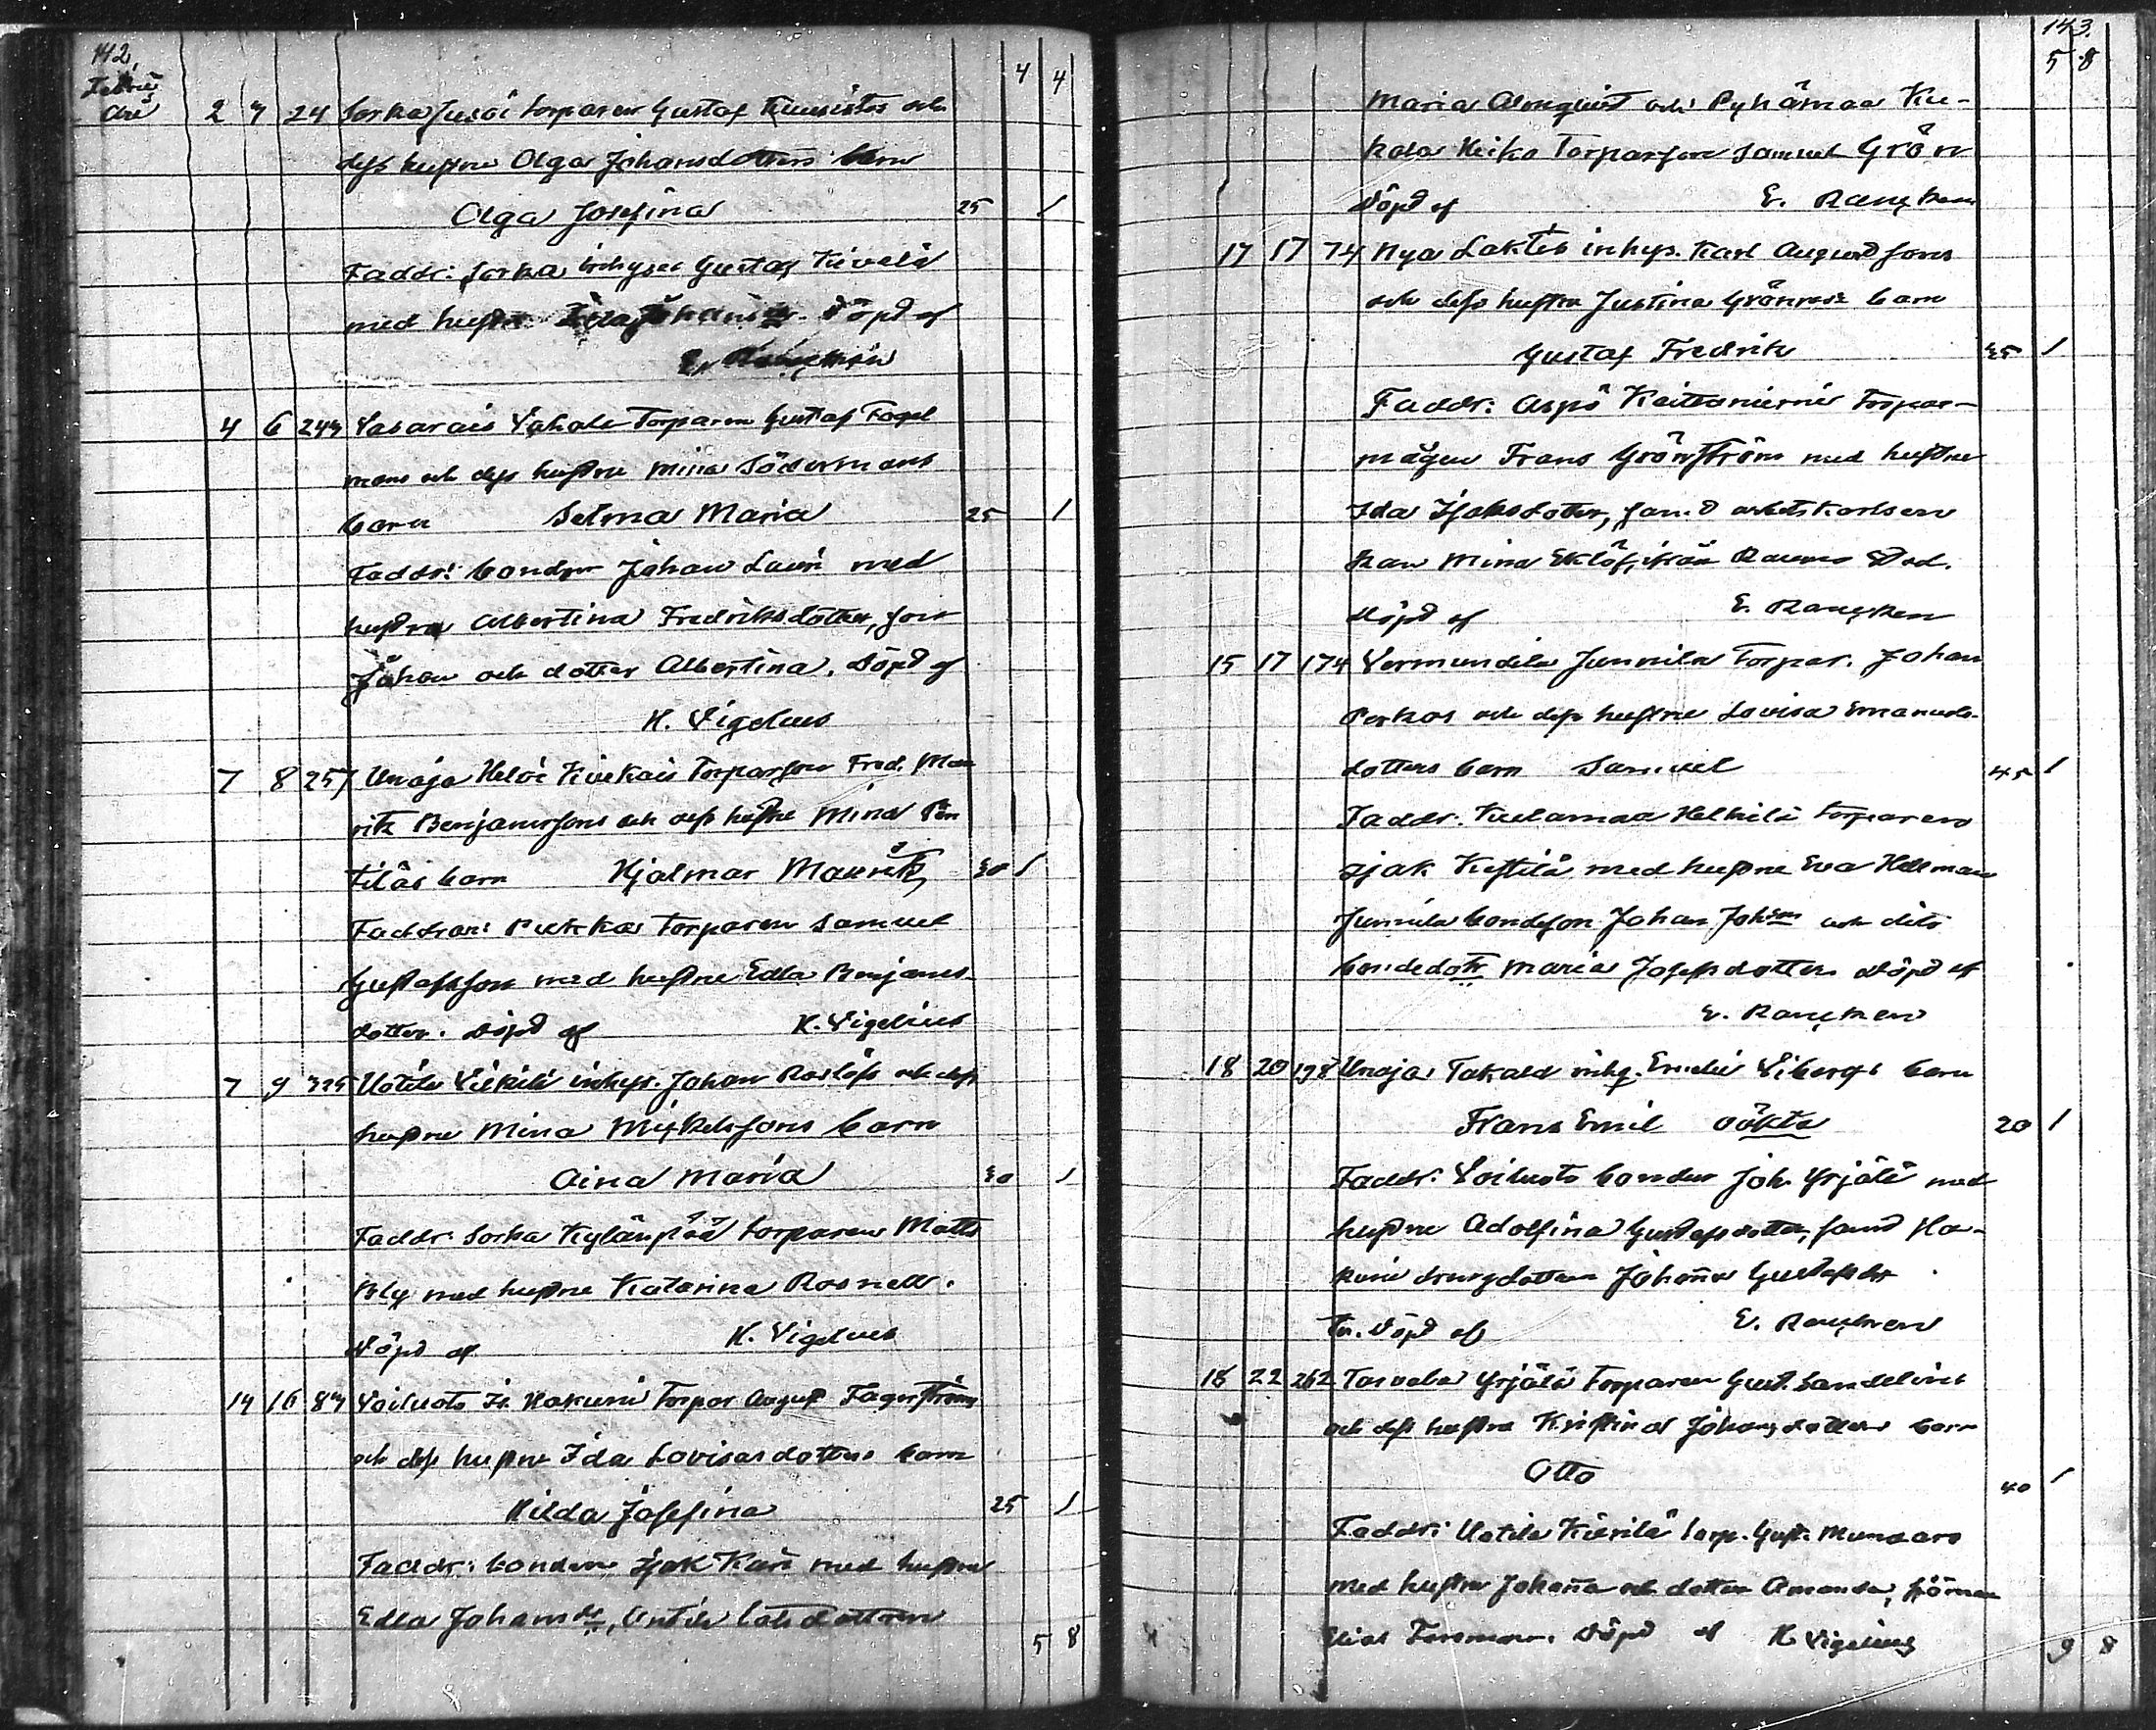 142.
4 4
Februarii
2 7 24 Sorka Jussi torparen Gustaf Kuusistos och
dess hustru Olga Johansdotters barn
Olga Josefina 25 1
Faddr: Sorka inhyses Gustaf Kivelä
med hustru Döpd af
E. Rancken
4 6 243 Vasarais torparen Gustaf Fogel
mans och dess hustru Mina Södermans
barn Selma Maria 25 1
Faddr: bonden Johan Lauri med
hustru Albertina Fredriksdotter, son
Johan och dotter Albertina. Döpd af
K. Vigelius
7 8 257 Unaja Heloi Kivekäs Torparson Fred. Mau
ritz Benjaminsons och dess hustru Mina Pen
tiläs barn Hjalmar Mauritz 30 1
Faddrar: torparen Samuel
Gustafsson med hustru Edla Benjams-
dotter. Döpd af K. Vigelius
7 9 325 Uotila inhys. Johan Roslöfs och dess
hustru Mina Mickelssons barn
Aina Maria 30 1
Faddr: Sorka Kylänpää torparen Matts
Bly med hustru Katarina Rosnell.
Döpd af K. Vigelius
14 16 83 Voiluoto Is. Hakuni Torpar August Fagerströms
och dess hustru Ida Lovisasdotters barn
Hilda Josefina 25 1
Faddr: bonden Isak Kari med hustru
Edla Johansdr, Antila
5 8
143.
5 8
Maria Almquist och Pyhämaa Ku-
kola Heiko Torparson Samuel Grön
Döpd af E. Rancken
17 17 74 Nya Laktis inhys. Karl Augustssons
och dess hustru Justina Grönroos barn
Gustaf Fredrik 35 1
Faddr: Aspö torpar-
mågen Frans Grönström med hustru
Ida Isaksdotter, samt arbetskarlsen
kan Mina Eklöf, ifrån Raumo stad.
Döpd af E. Rancken
15 17 174 Vermundila Junnila Torpar. Johan
Perkos och dess hustru Lovisa Emanuels-
dotters barn Samuel 45 1
Faddr. Kulamaa Heikilä torparen
Isak Kestilä med hustru Eva Hellman
Junnila bondeson Johan Johsson och dito
bondedotr Maria Josefsdotter. Döpd af
E. Rancken
18 20 198 Unaja Takala inhy. Emelie Vibergs barn
Frans Emil oäkta 20 1
Faddr: Voiluoto bonden Joh. Yrjälä med
hustru Adolfina Gustafsdotter, samt Ha-
kuni drängdottern Johanna Gustafsdot
ter. Döpd af E. Rancken
18 22 262 Tarvola Yrjälä torparen Gust. Sandelins
och dess hustru Kristina Johansdotters barn
Otto 40 1
Faddr: Uotila torp. Gust. Mundars
med hustru Johanna och dotter Amanda,
Elias Forsman. Döpd af K. Vigelius
9 8